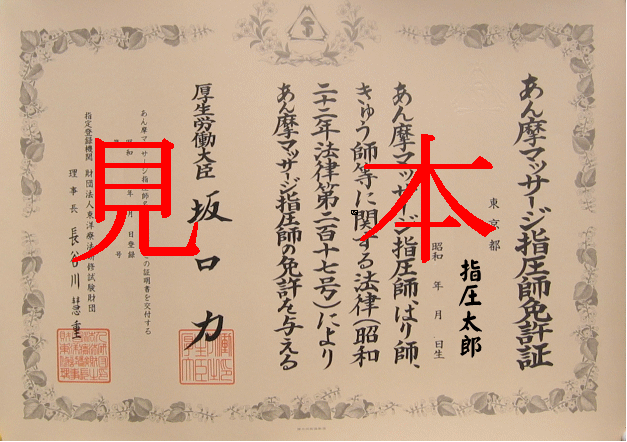 あん摩マッサージ指圧師免許証
東京都
指圧太郎
昭和 年 月 日生
あん摩マッサージ指圧師、はり師、
きゅう師等に関する法律(昭和
二十二年法律第二百十七号)により
あん摩マッサージ指圧師の免許を与える
厚生労働大臣 坂口力
あん摩マッサージ指圧師 の証明書を交付する
昭和 年 月 日登録
号
指定登録機関 財団法人東洋療法研修試験財団
理事長 長谷川慧重
見本